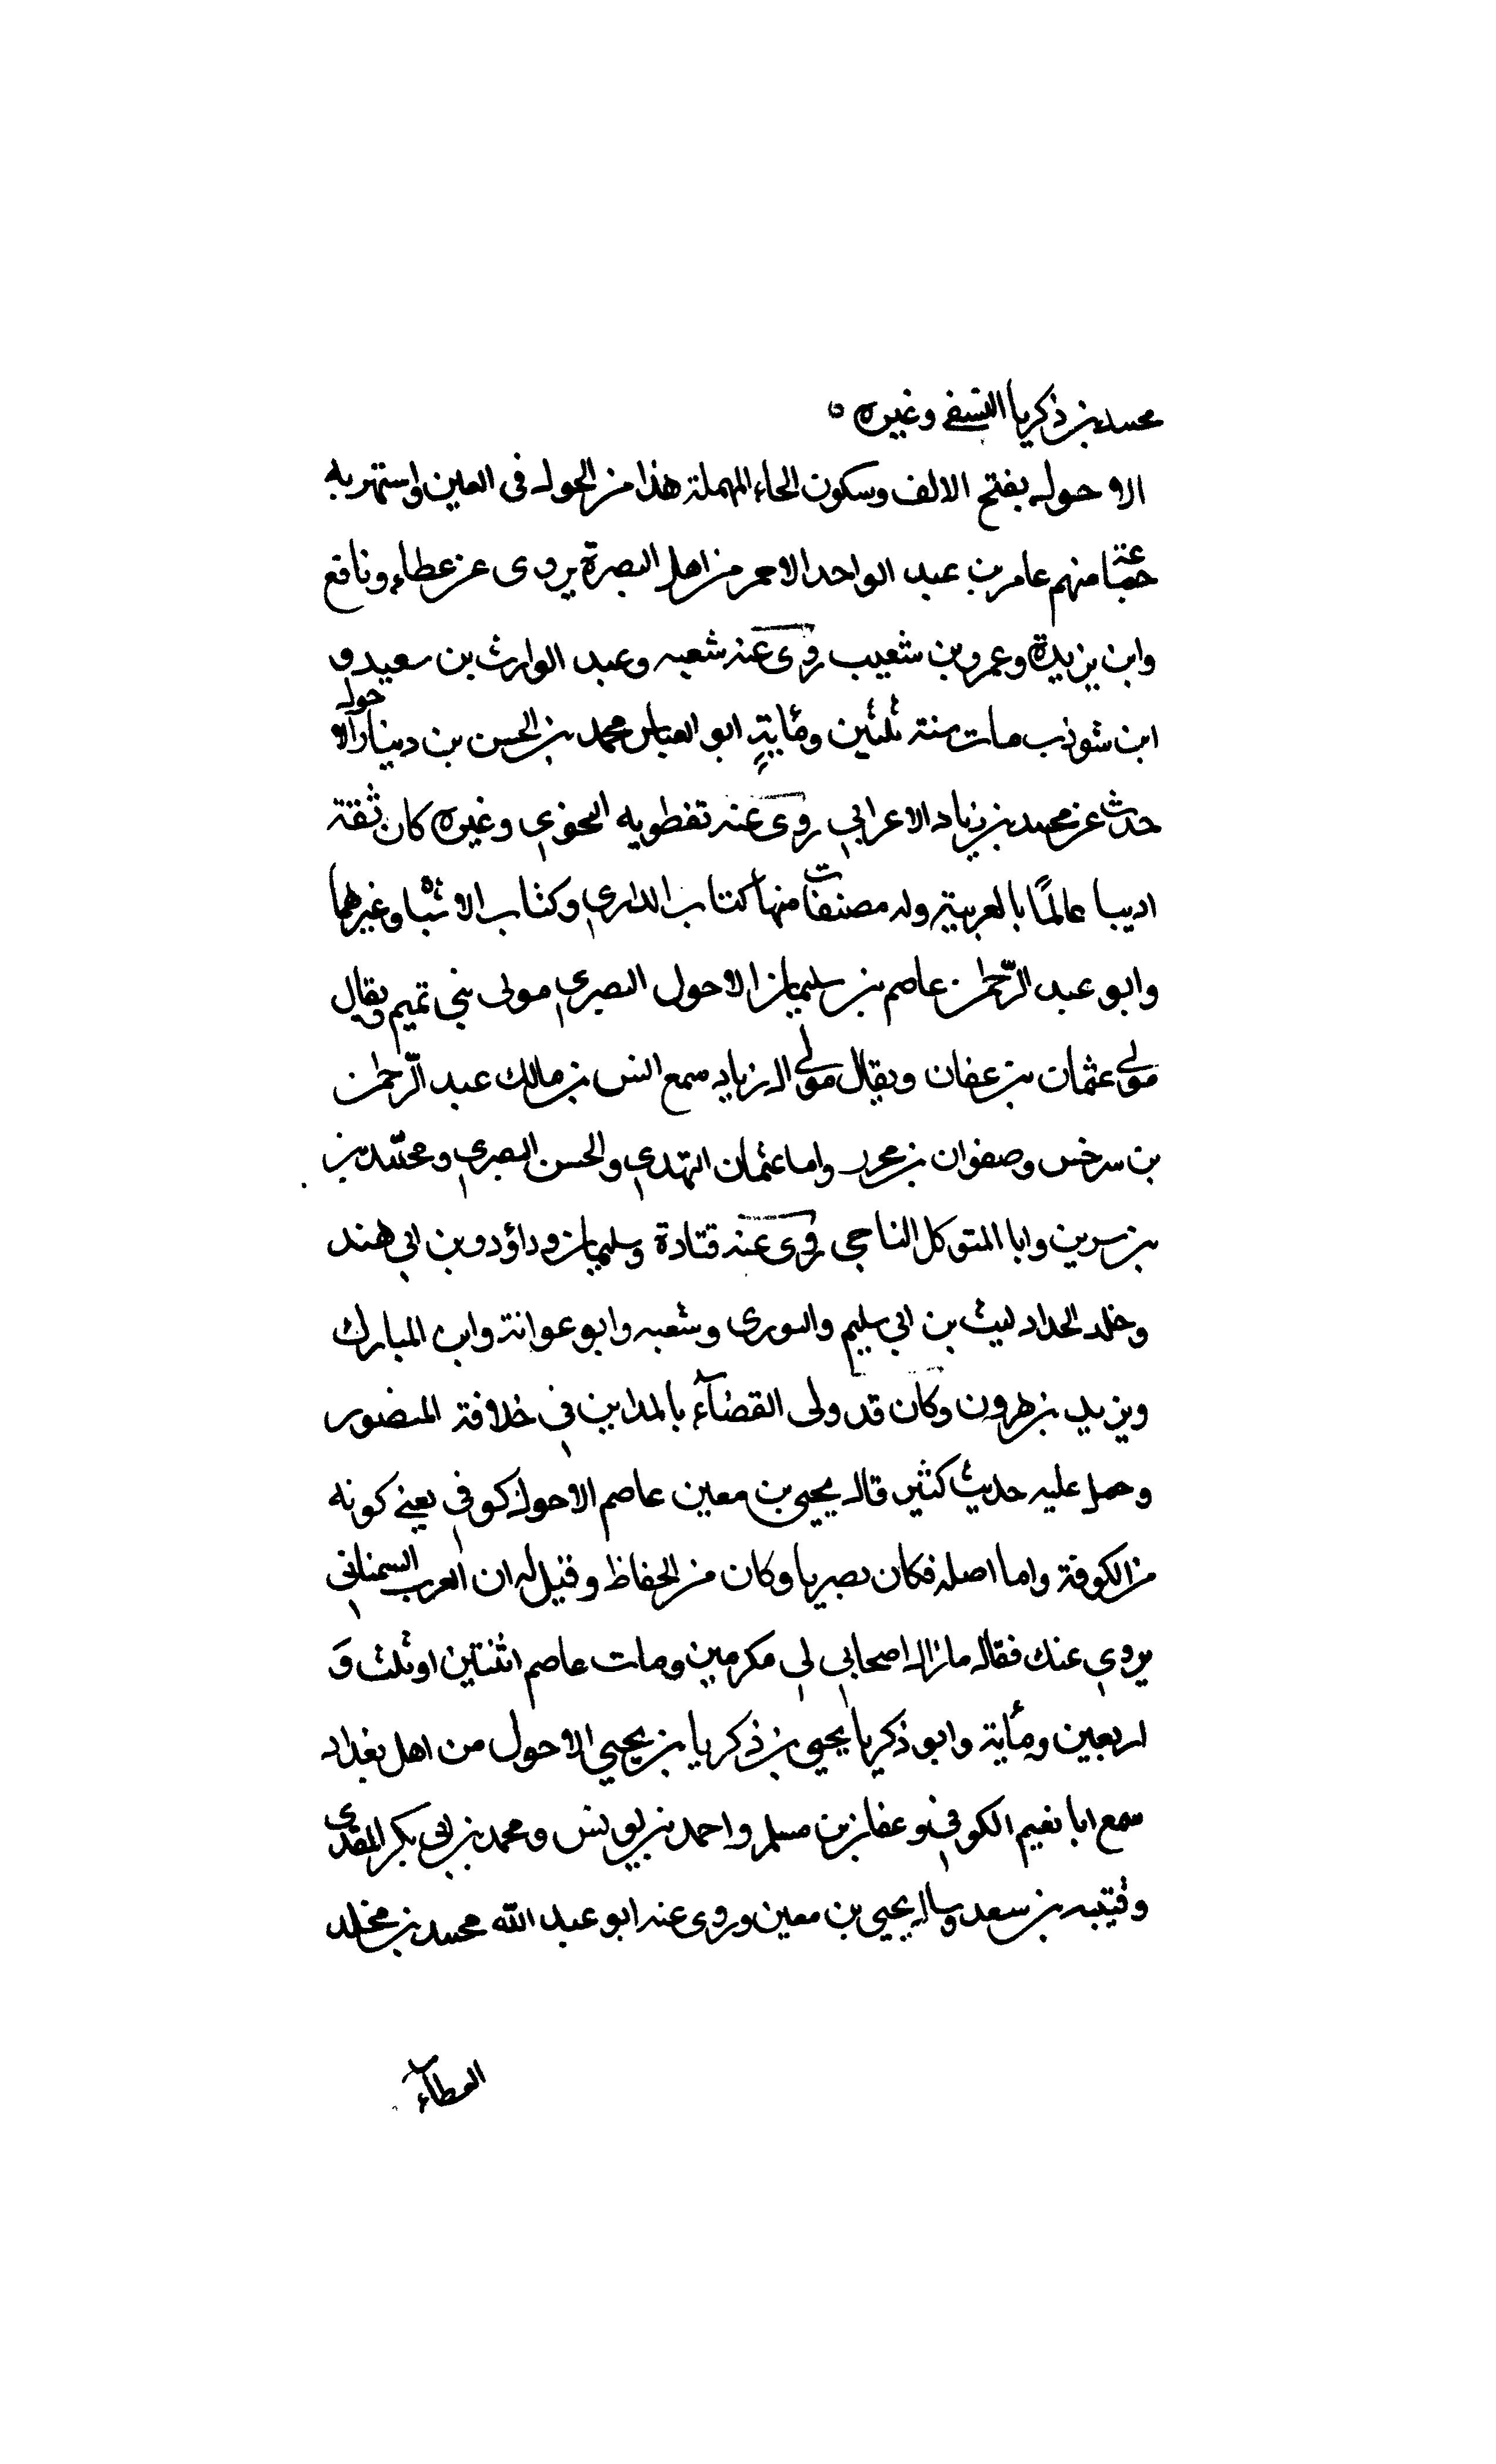 محمد بن زكريا النسفي وغيره ه
الاحول بفتح الالف وسكون الحاء المهملة هذا من الحول في العين واشتهر به
جماعة منهم عامر بن عبد الواحد الاحمر من اهل البصرة يروى عن عطاء ونافع
وابن يزيدة وعمرو بن شعيب روى عنه شعبه وعبد الوارث بن سعيد و
ابن شوذب مات سنة ثلثين ومأية ابو العباس محمد بن الحسن بن دينار الاحول
حدث عن محمد بن زياد الاعرابي روى عنه نفطويه النحوي وغيره كان ثقة
اديبا عالمًا بالعربية وله مصنفات منها كتاب الداري وكتاب الاشباه وغيرهما
وابو عبد الرّحمن عاصم بن سليمان الاحول البصري مولى بني تميم ويقال
مولى عثمان بن عفان ويقال مولى ال زياد سمع انس بن مالك عبد الرّحمن
بن سرخس وصفوان بن محرر واما عثمان النهدي والحسن البصري ومحمّد بن
بن سرين وابا المتوكل الناجي روى عنه قتادة وسليمان وداؤد وبن ابي هند
وخلد الحداد ليث بن ابي سليم والثوري وشعبه وابو عوانة وابن المبارك
ويزيد بن هرون وكان قد ولى القضآء بالمداين في خلافة المنصور
وحمل عليه حديث كثير قال يحيى بن معين عاصم الاحول كوفي يعني كونه
من الكوفة واما اصله فكان بصريا وكان من الحفاظ وقيل له ان العرب السمناني
يروي عنك فقال مازال اصحابي لي مكرمين ومات عاصم اثنتين او ثلث وَ
اربعين ومأية وابو ذكريا يحيى بن ذكريا بن يحيي الاحول من اهل بغداد
سمع ابا نعيم الكوفي وعفان بن مسلم واحمد بن يونس ومحمد بن ابي بكر المقدمى
وقتيبه بن سعد وسال يحيى بن معين وروى عنه ابو عبد الله محمد بن مخلد
العطاء